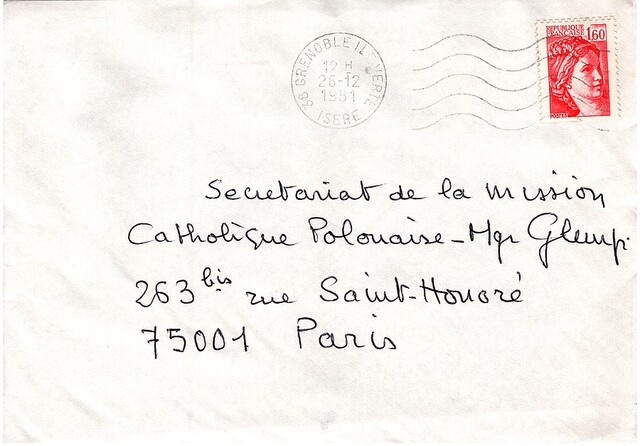 38 GRENOBLE ILE VERTE
12 H
26-12
1981
ISERE
REPUBLIQUE
FRANÇAISE
1,60
POSTES
Secretariat de la mission
Catholique Polonaise-Mgr Glemp.
263 bis rue Saint-Honoré
75001 Paris